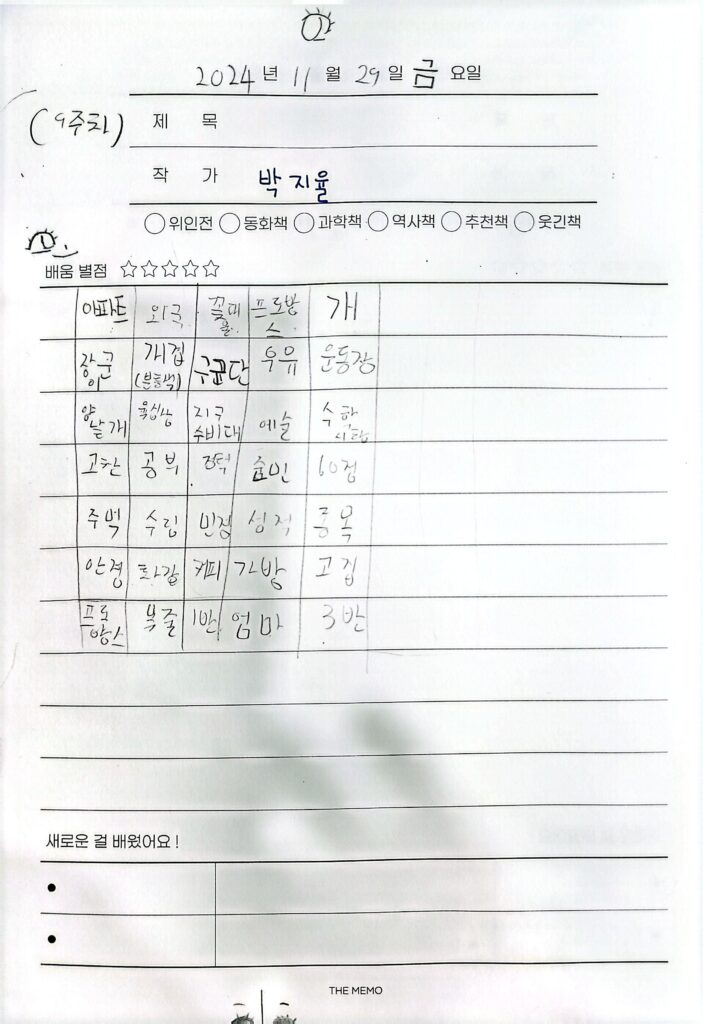 2024 년 11 월 29 일 금 요일
(9주차) 제 목
작 가 박지율
위인전 동화책 과학책 역사책 추천책 웃긴책
1.
배움 별점 ☆☆☆☆☆
아파트 외국 꽃미을 프로방스 개
장군이 개집(분홍색) 구구단 우유 운동장
양날개 육십상 지구수비대 예술 수학
고찬 공부 줍민 60점
주먹 수립 민정 성적 종목
안경 화갑 커피 가방 고집
프로방스 북줄 1반 엄마 3반
새로운 걸 배웠어요 !
THE MEMO